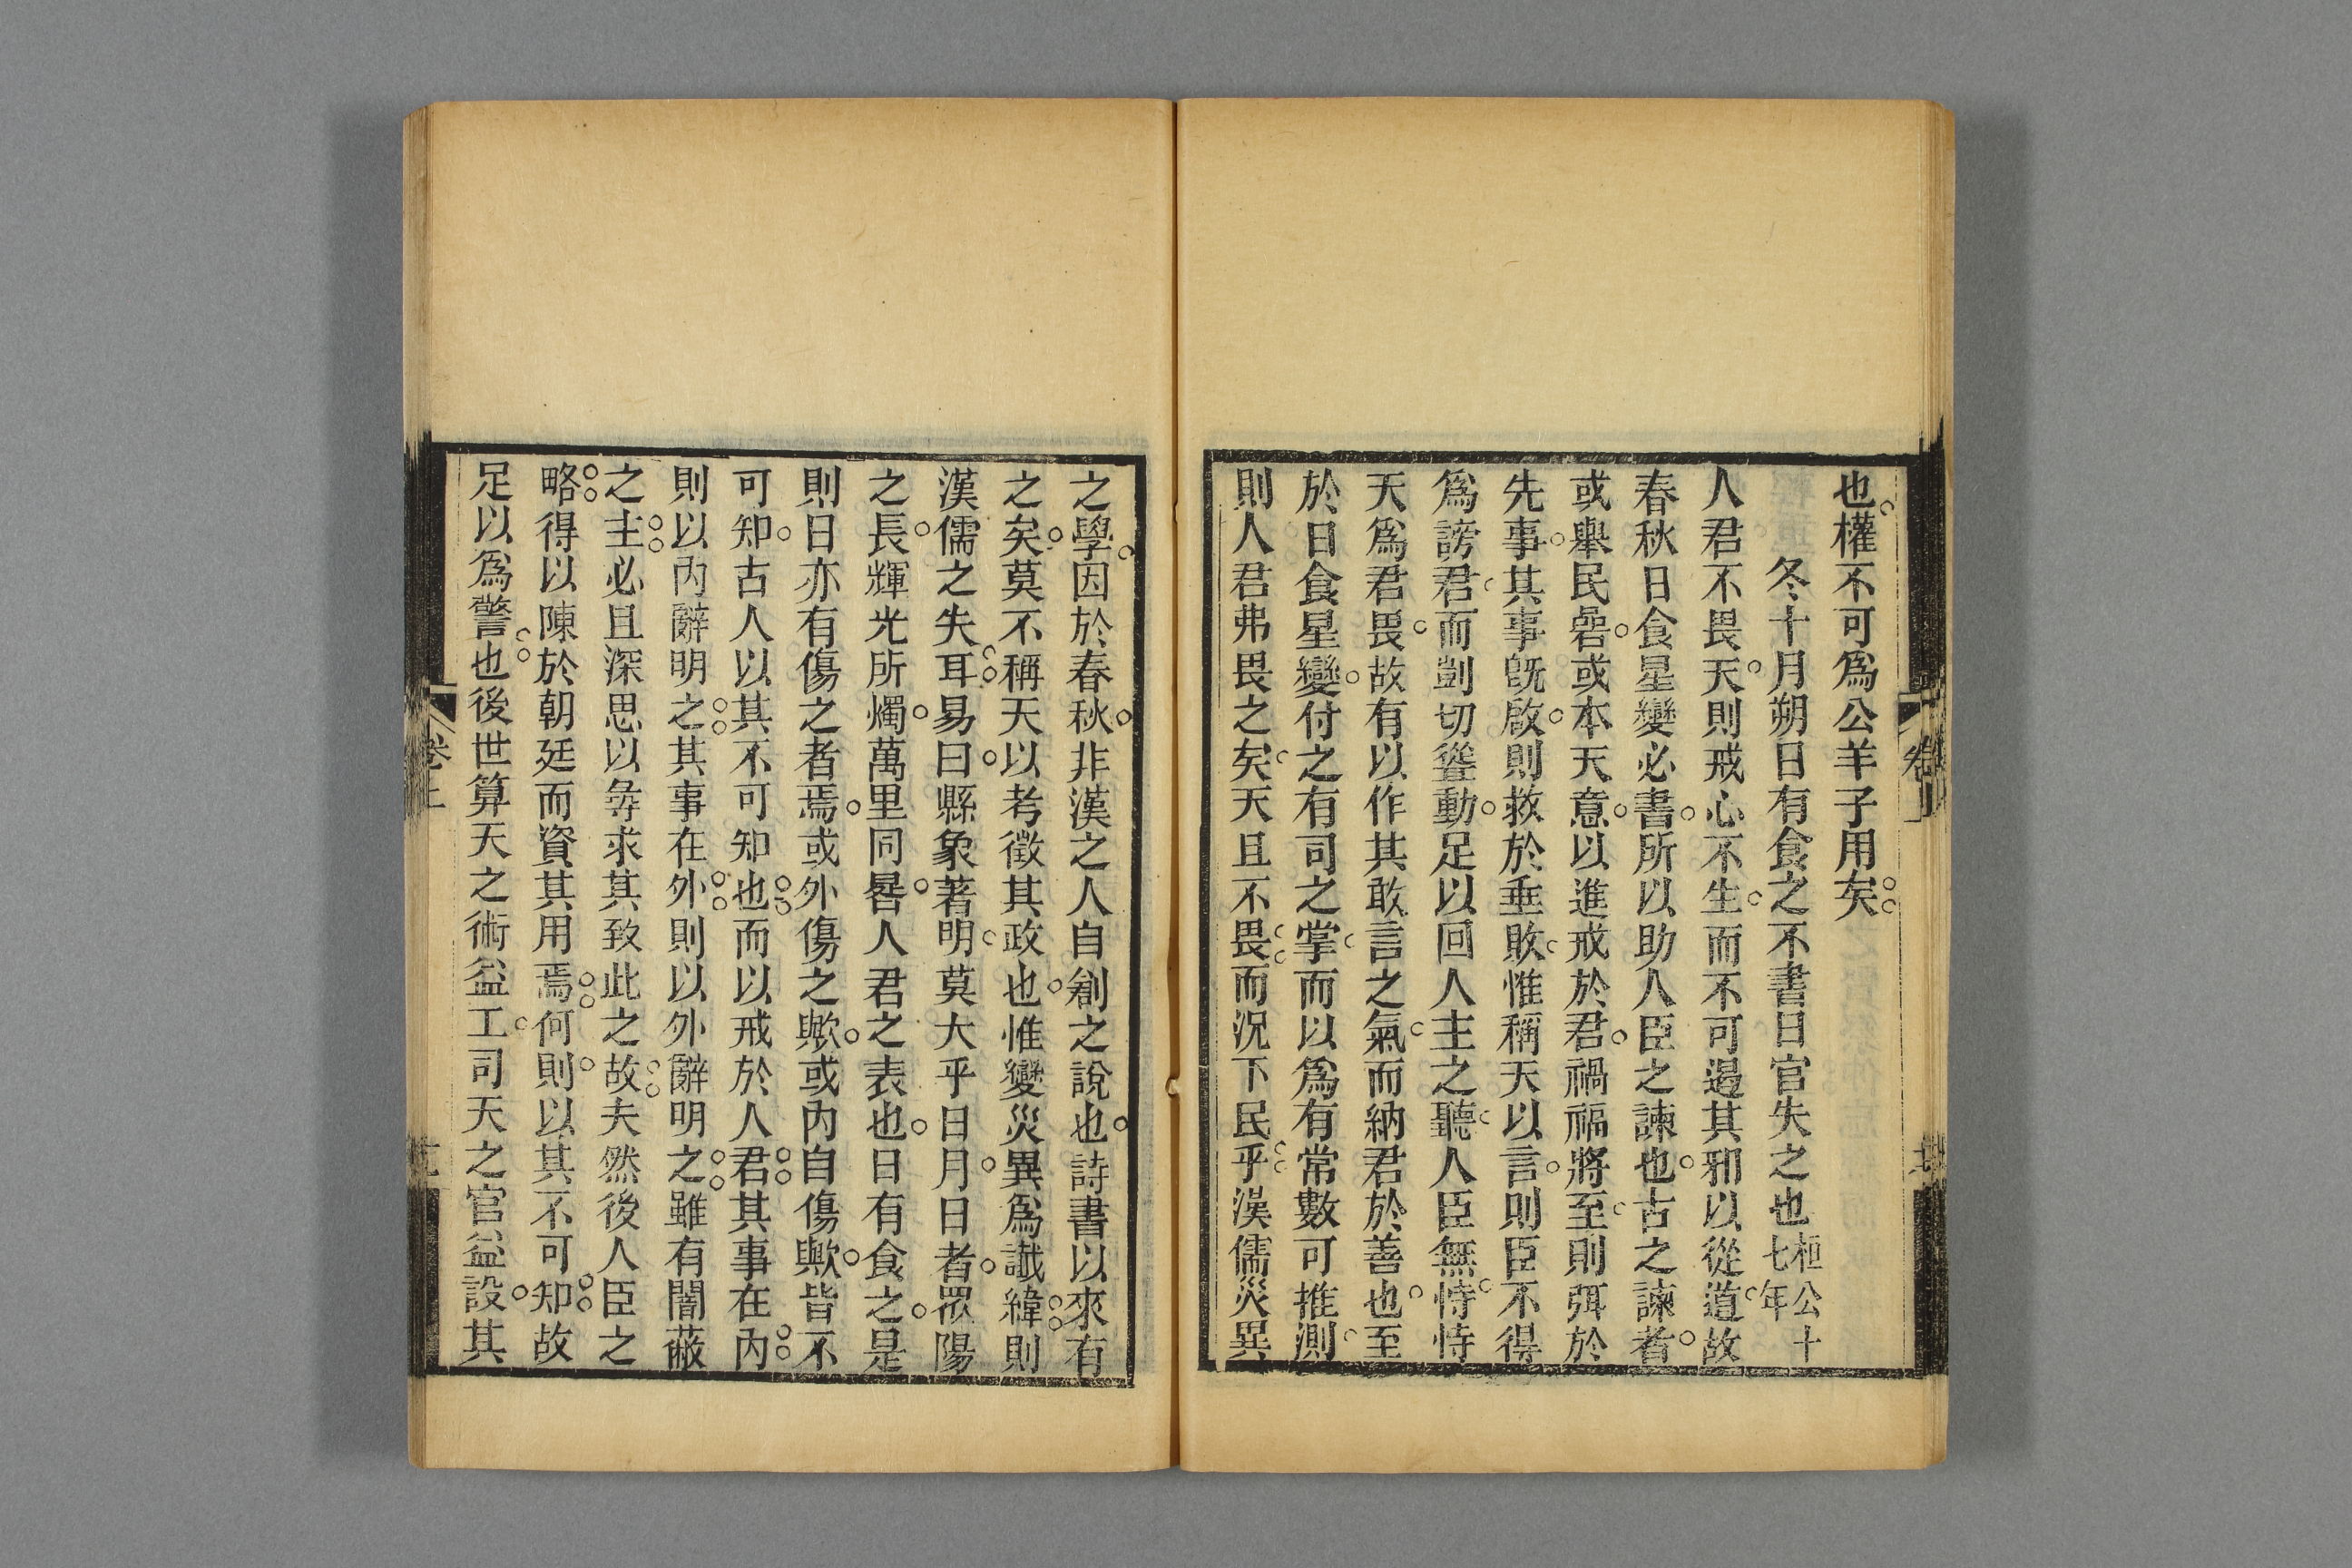 也權不可爲公羊子用矣
冬十月朔日有食之不書日官失之也桓公十七年
人君不畏天則戒心不生而不可遏其邪以從道故
春秋日食星變必書所以助人臣之諫也古之諫者
或舉民碞或本天意以進戒於君禍福將至則弭於
先事其事既啟則救於垂敗惟稱天以言則臣不得
爲謗君而剴切聳動足以回人主之聽人臣無恃恃
天爲君畏故有以作其敢言之氣而納君於善也至
於日食星變付之有司之掌而以爲有常數可推測
則人君弗畏之矣天且不畏而況下民乎漢儒災異
之學因於春秋非漢之人自創之說也詩書以來有
之矣莫不稱天以考徵其政也惟變災異爲讖緯則
漢儒之失耳易曰縣象著明莫大乎日月日者眾陽
之長輝光所燭萬里同晷人君之表也日有食之是
則日亦有傷之者焉或外傷之歟或內自傷歟皆不
可知古人以其不可知也而以戒於人君其事在內
則以內辭明之其事在外則以外辭明之雖有闇蔽
之主必且深思以尋求其致此之故夫然後人臣之
略得以陳於朝廷而資其用焉何則以其不可知故
足以爲警也後世算天之術益工司天之官益設其
卷上